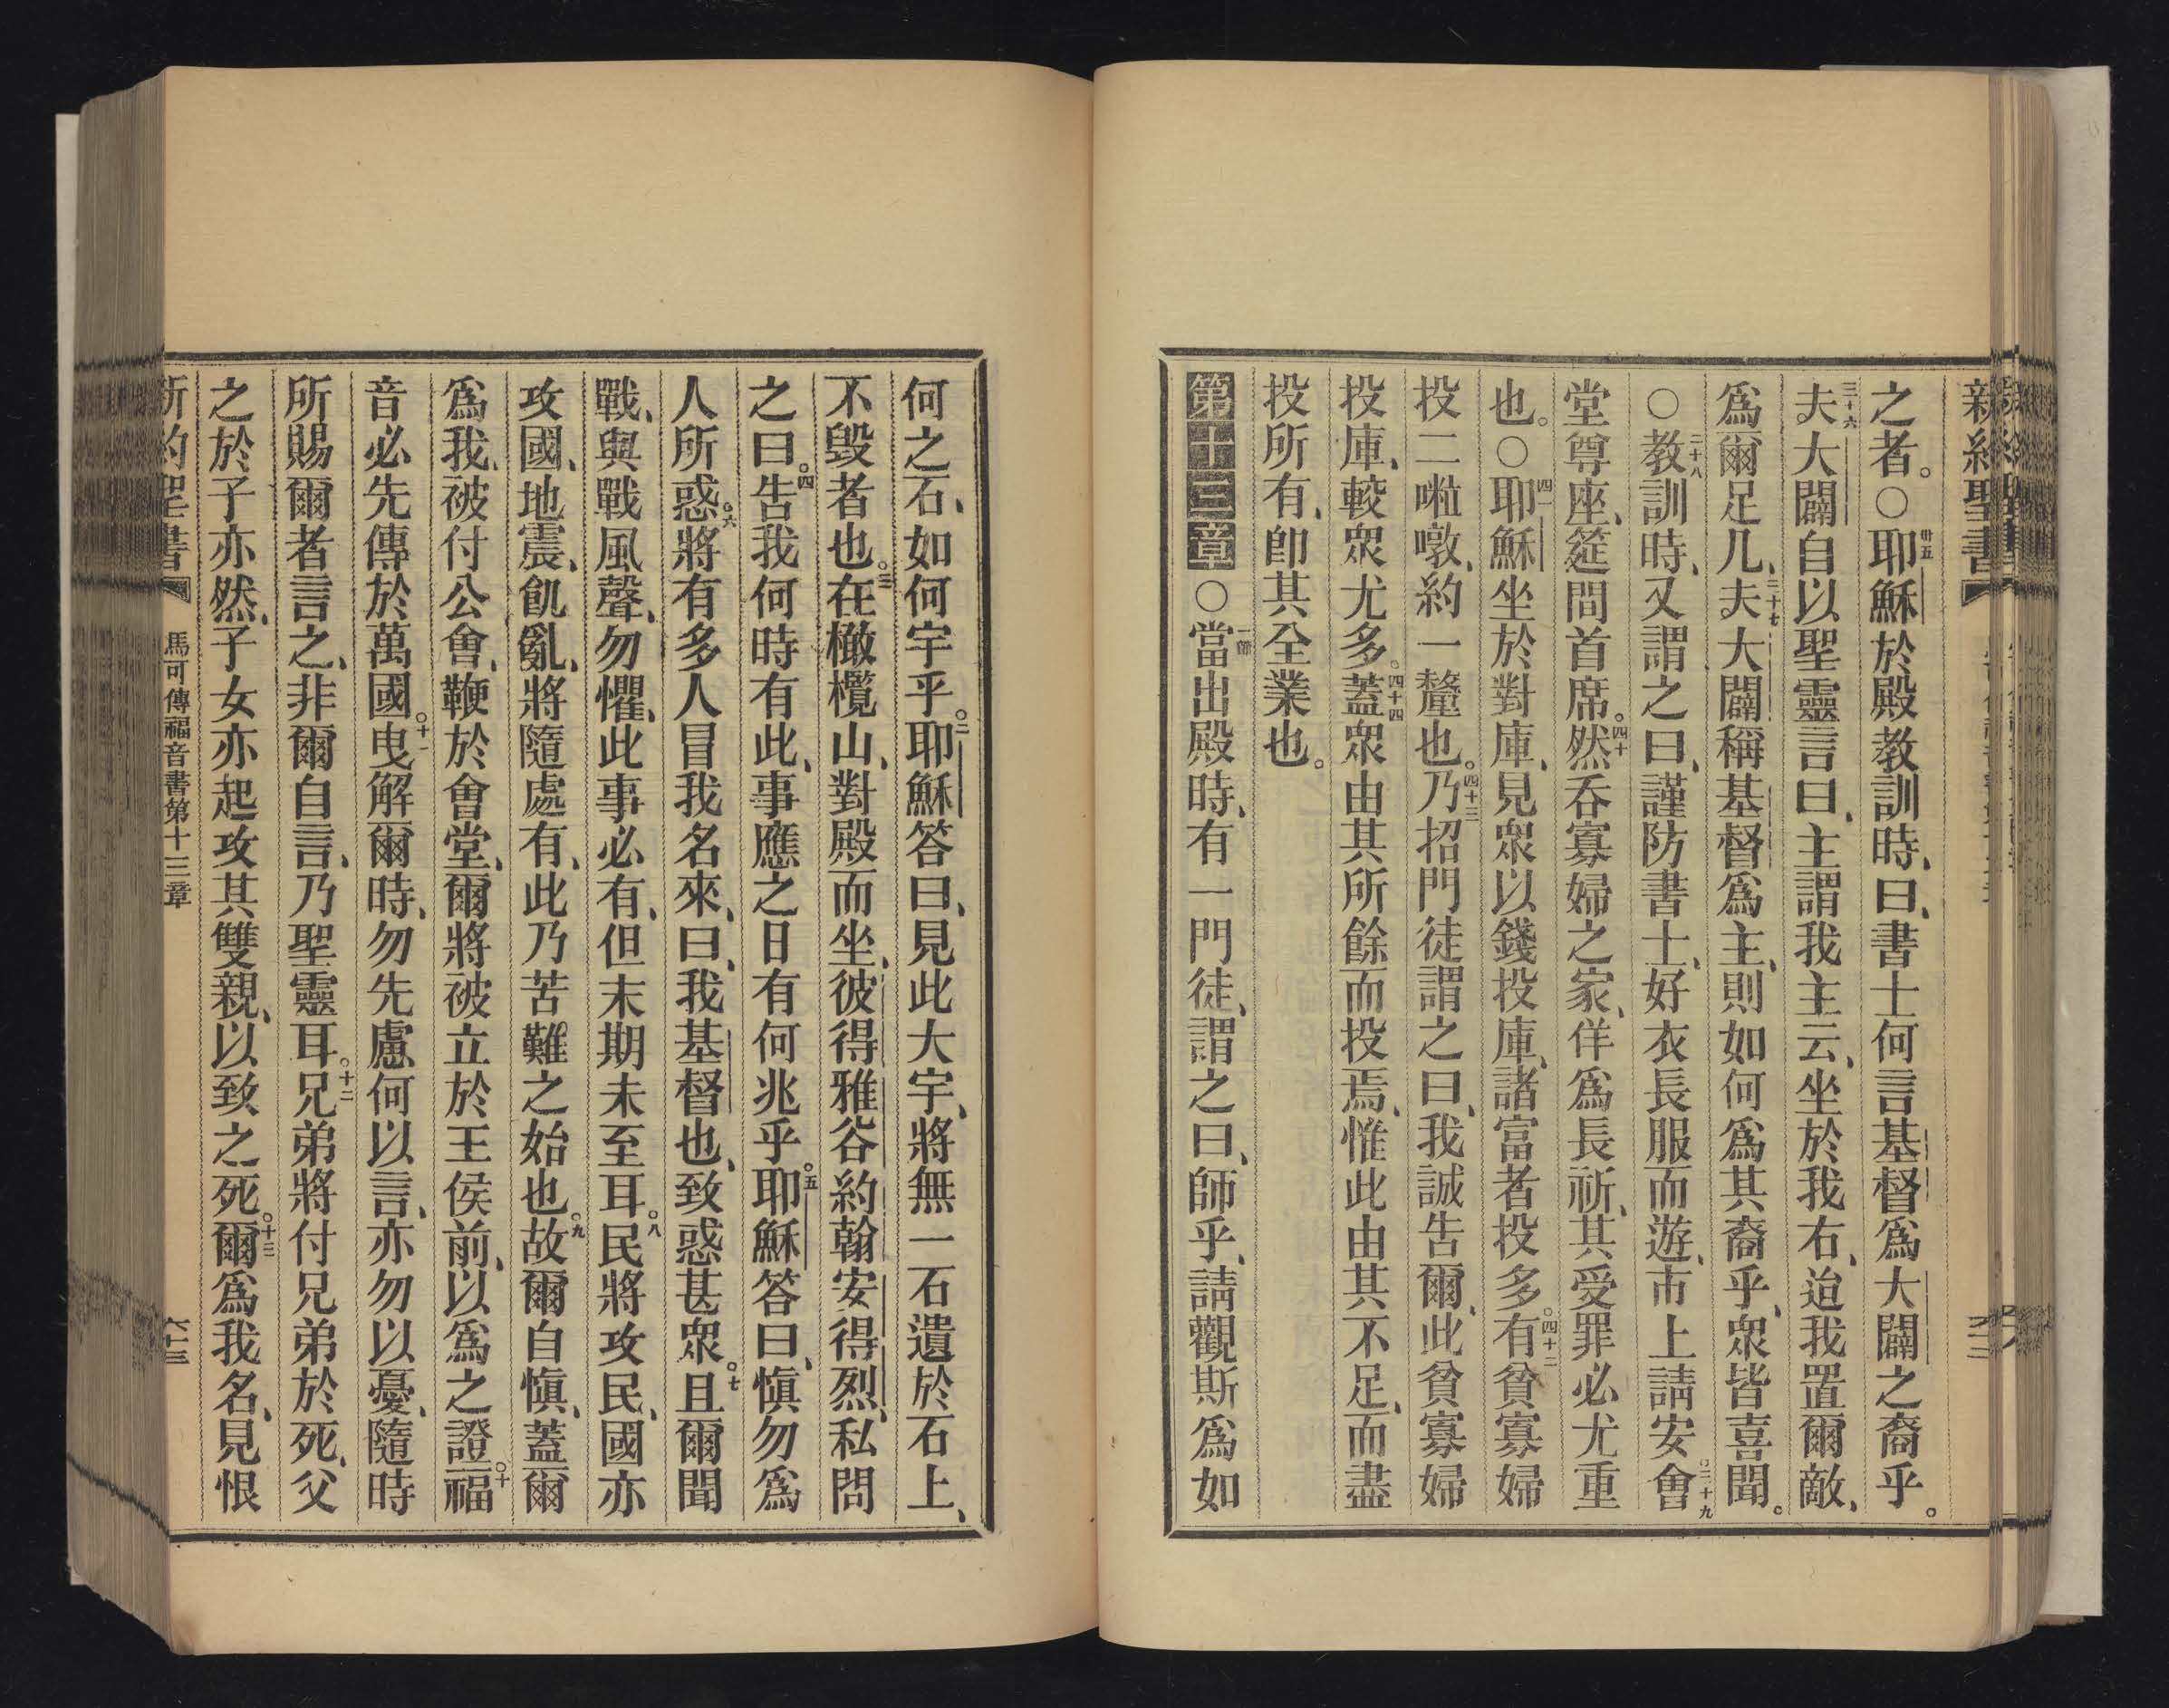 新約聖書
之者。○耶穌於殿教訓時、曰、書士何言基督爲大闢之裔乎。
夫大闢自以聖靈言曰、主謂我主云、坐於我右、迨我置爾敵、
爲爾足几、夫大闢稱基督爲主、則如何爲其裔乎、衆皆喜聞。
○教訓時、又謂之曰、謹防書士、好衣長服而遊、市上請安、會
堂尊座、筵間首席。然吞寡婦之家、佯爲長祈、其受罪必尤重
也。○耶穌坐於對庫、見衆以錢投庫、諸富者投多。有貧寡婦
投二𠼤噋、約一釐也。乃招門徒謂之曰、我誠吿爾、此貧寡婦
投庫、較衆尤多。蓋衆由其所餘而投焉、惟此由其不足、而盡
投所有、卽其全業也。
第十三章○當出殿時、有一門徒、謂之曰、師乎、請觀斯爲如
何之石、如何宇乎。耶穌答曰、見此大宇、將無一石遺於石上、
不毀者也。在橄欖山、對殿而坐、彼得雅谷約翰安得烈、私問
之曰。吿我何時有此、事應之日有何兆乎。耶穌答曰、愼勿爲
人所惑。將有多人冒我名來、曰、我基督也、致惑甚衆。且爾聞
戰、與戰風聲、勿懼、此事必有、但末期未至耳。民將攻民、國亦
攻國、地震、飢亂、將隨處有、此乃苦難之始也。故爾自愼、蓋爾
爲我、被付公會、鞭於會堂、爾將被立於王侯前、以爲之證。福
音必先傳於萬國。曳解爾時、勿先慮何以言、亦勿以憂、隨時
所賜爾者言之、非爾自言、乃聖靈耳。兄弟將付兄弟於死、父
之於子亦然、子女亦起攻其雙親、以致之死。爾爲我名、見恨
新約聖書 馬可傳福音書第十三章 六十三